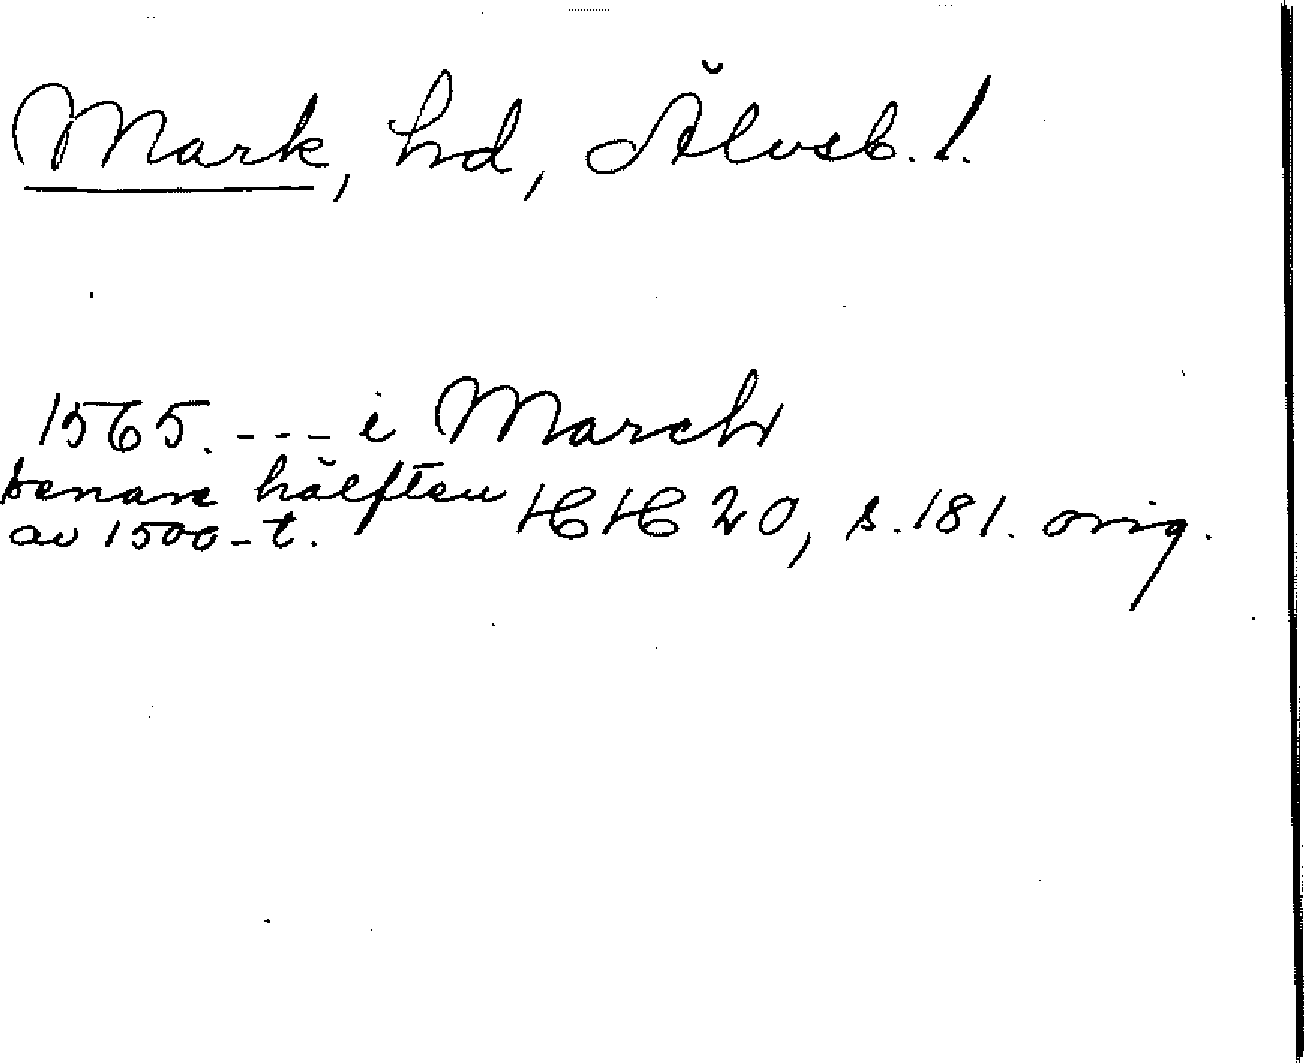 Mark, hd, Älvsb. l.
1565. --- i March
senare hälften
av 1500-t.
HH 20, s. 181. orig.